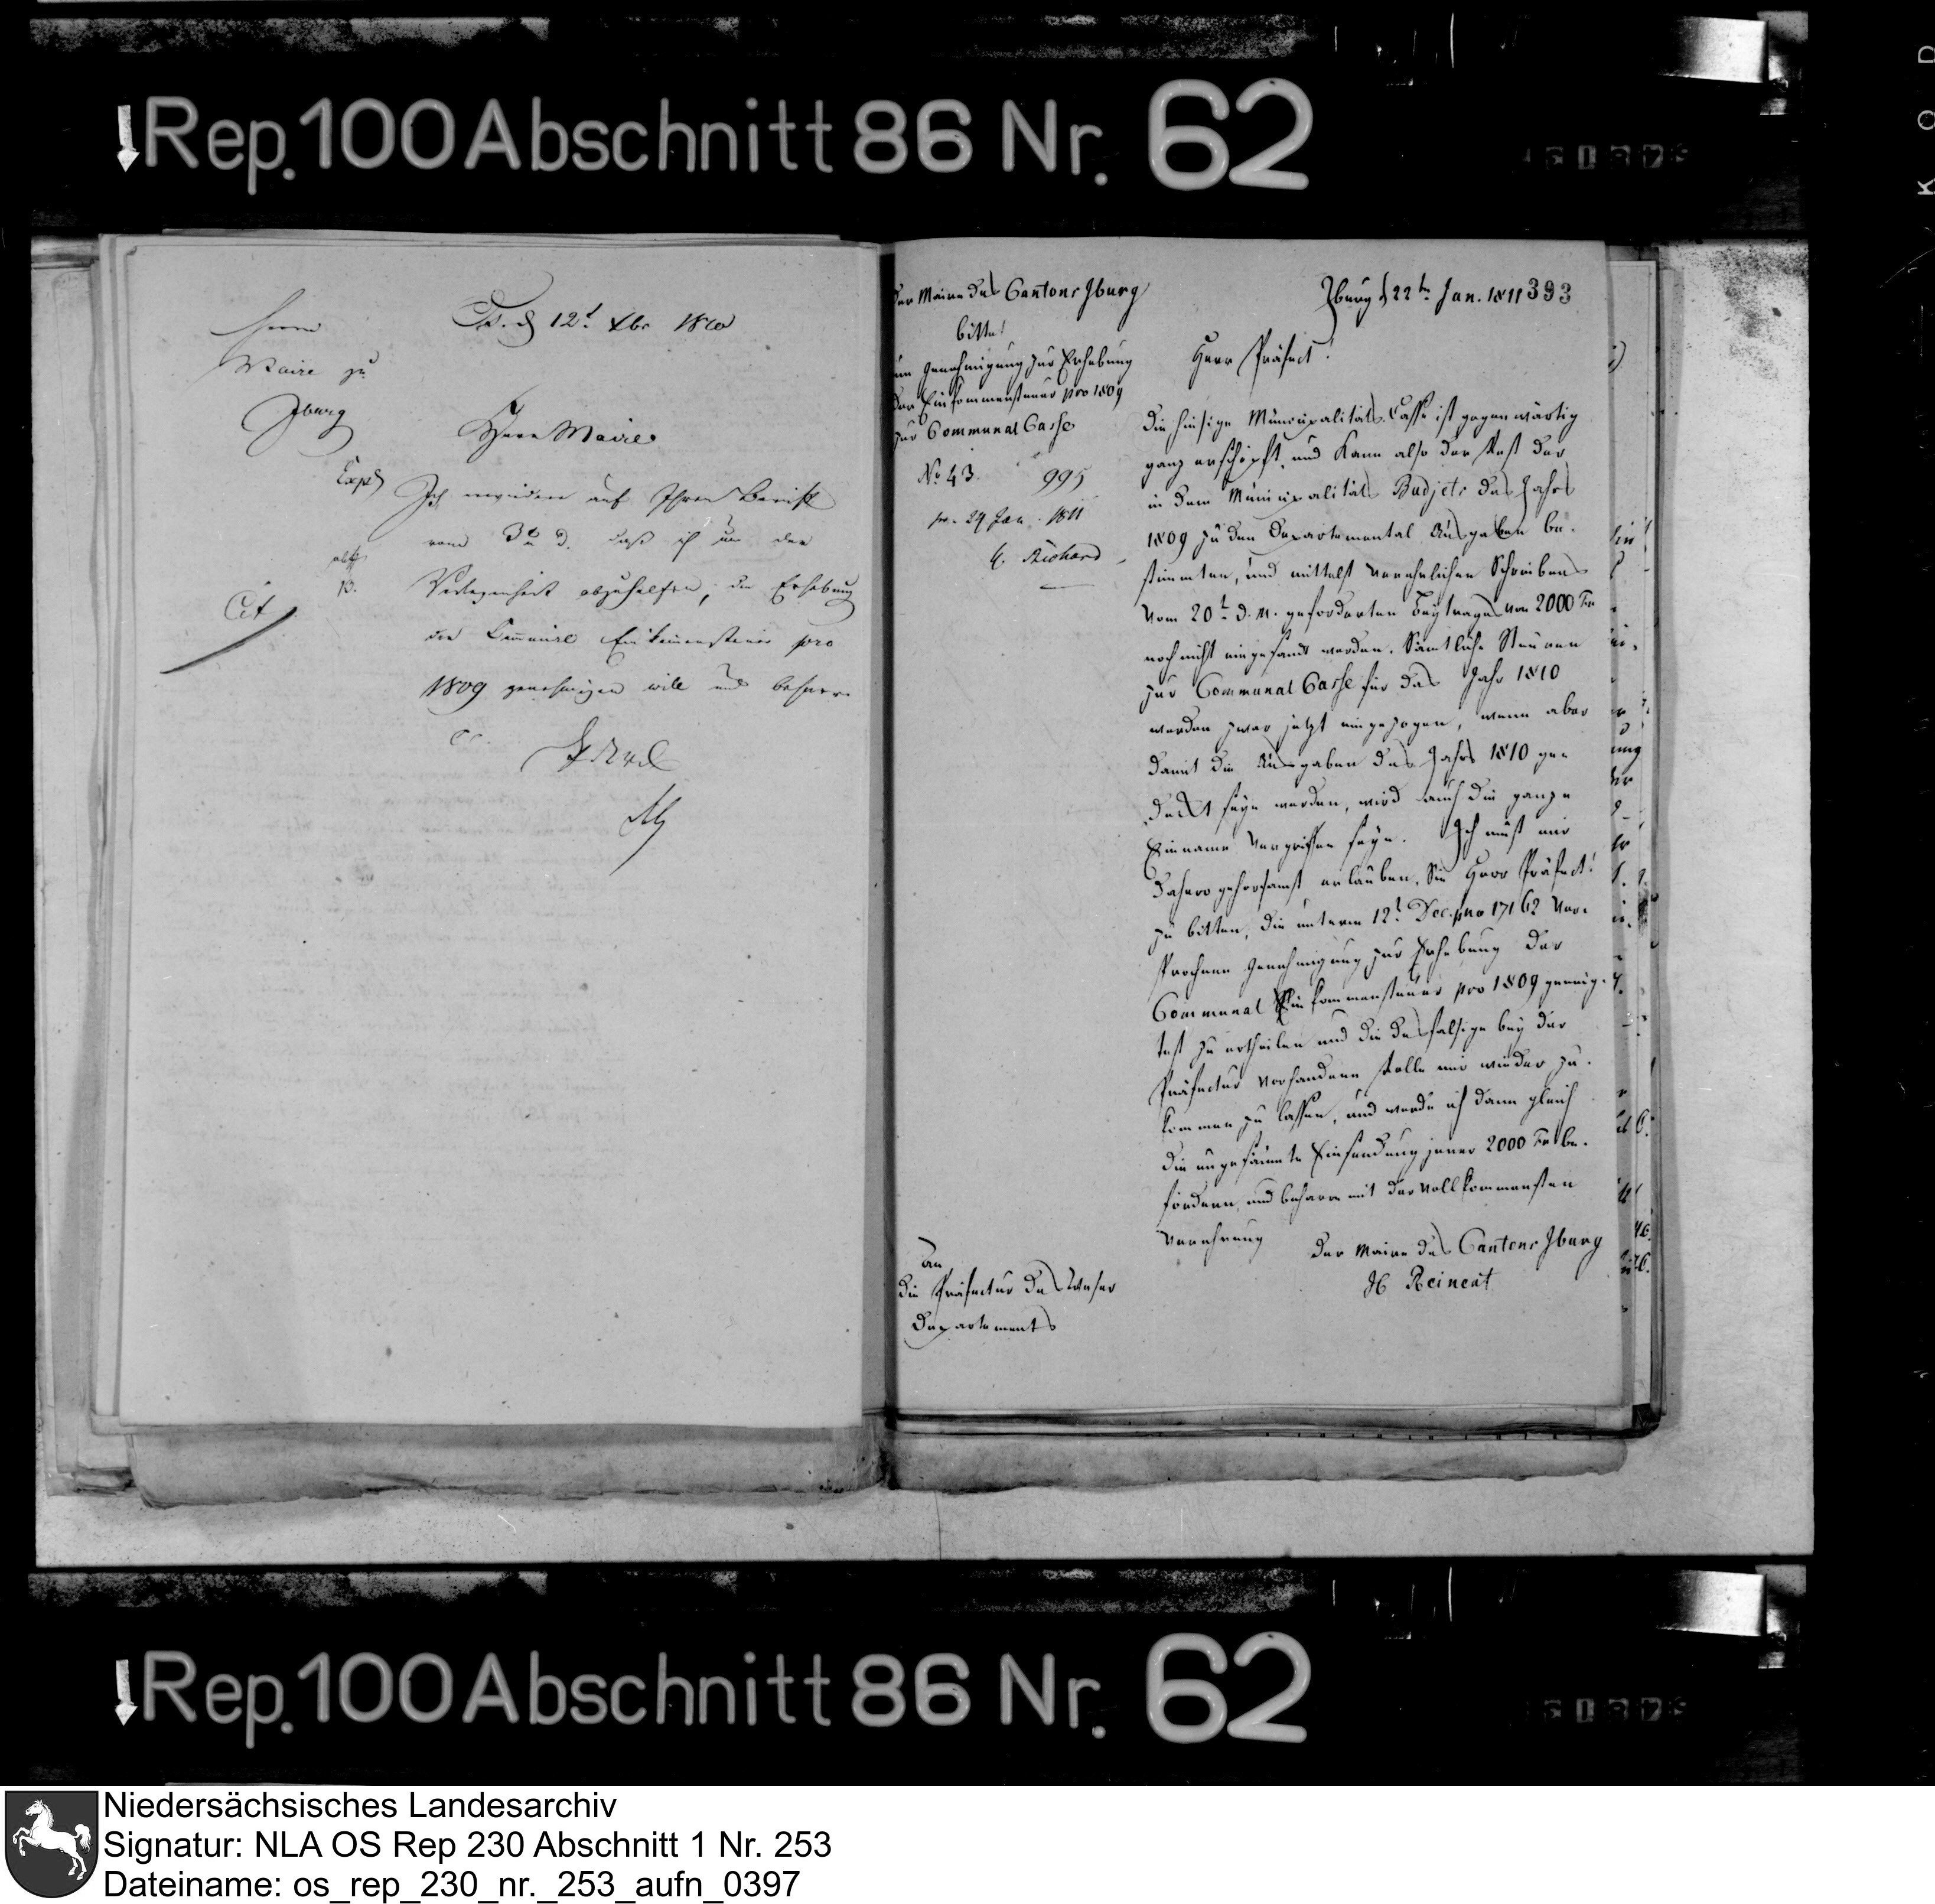 Rep. 100 Abschnitt 86 Nr. 62
Herrn
Maire zu
Iburg
Os. d 12t. Xbr 1810
Herr Maire
Expd
Ich erwidere auf Ihren Bericht
vom 3ten d. daß ich um der
Verlegenheit abzuhelfen, die Erhebung
der Commune Einkommensteuer pro
1809 genehmigen will und beharre
Cit
Der Maire des Cantons Iburg
bittet
um Genehmigung zur Erhebung
der Einkommensteuer pro 1809
zur Communal Casse
No. 43. 995
pr. 24 Jan. 1811
Richard
Iburg d 22ten Jan. 1811
393
Herr Präfect!
Die hiesige Municipalitäts Casse ist gegenwärtig
ganz erschöpft, und kann also der Rest der
in dem Municipalitäts Budjets des Jahrs
1809 zu den Departemental Ausgaben be-
stimmten, und mittelst verehrlichen Schreibens
vom 20t. d. M. geforderten Beytrages von 2000 Fr
noch nicht eingesandt werden. Sämtliche Steuren
zur Communal Casse für das Jahr 1810
werden zwar jetzt eingezogen, wenn aber
damit die Ausgaben des Jahrs 1810 ge-
deckt seyn werden, wird auch die ganze
Einname vergriffen seyn. Ich muß mir
dahero gehorsamst erlauben, Sie Herr Präfect!
zu bitten, die unterm 12t. Dec. pno 17162 ver-
sprochene Genehmigung zur Erhebung der
Communal Einkommensteuer pro 1809 geneig-
test zu ertheilen und die desfalsige bey der
Präfectur vorhandene Rolle mir wieder zu-
kommen zu lassen, und werde ich dann gleich
die ungesäumte Einsendung jener 2000 Fr be-
fördern, und beharre mit der vollkommensten
Verehrung
Der Maire des Cantons Iburg
An
die Präfectur des Weser
Departements
Rep. 100 Abschnitt 86 Nr. 62
Niedersächsisches Landesarchiv
Signatur: NLA OS Rep 230 Abschnitt 1 Nr. 253
Dateiname: os_rep_230_nr._253_aufn_0397